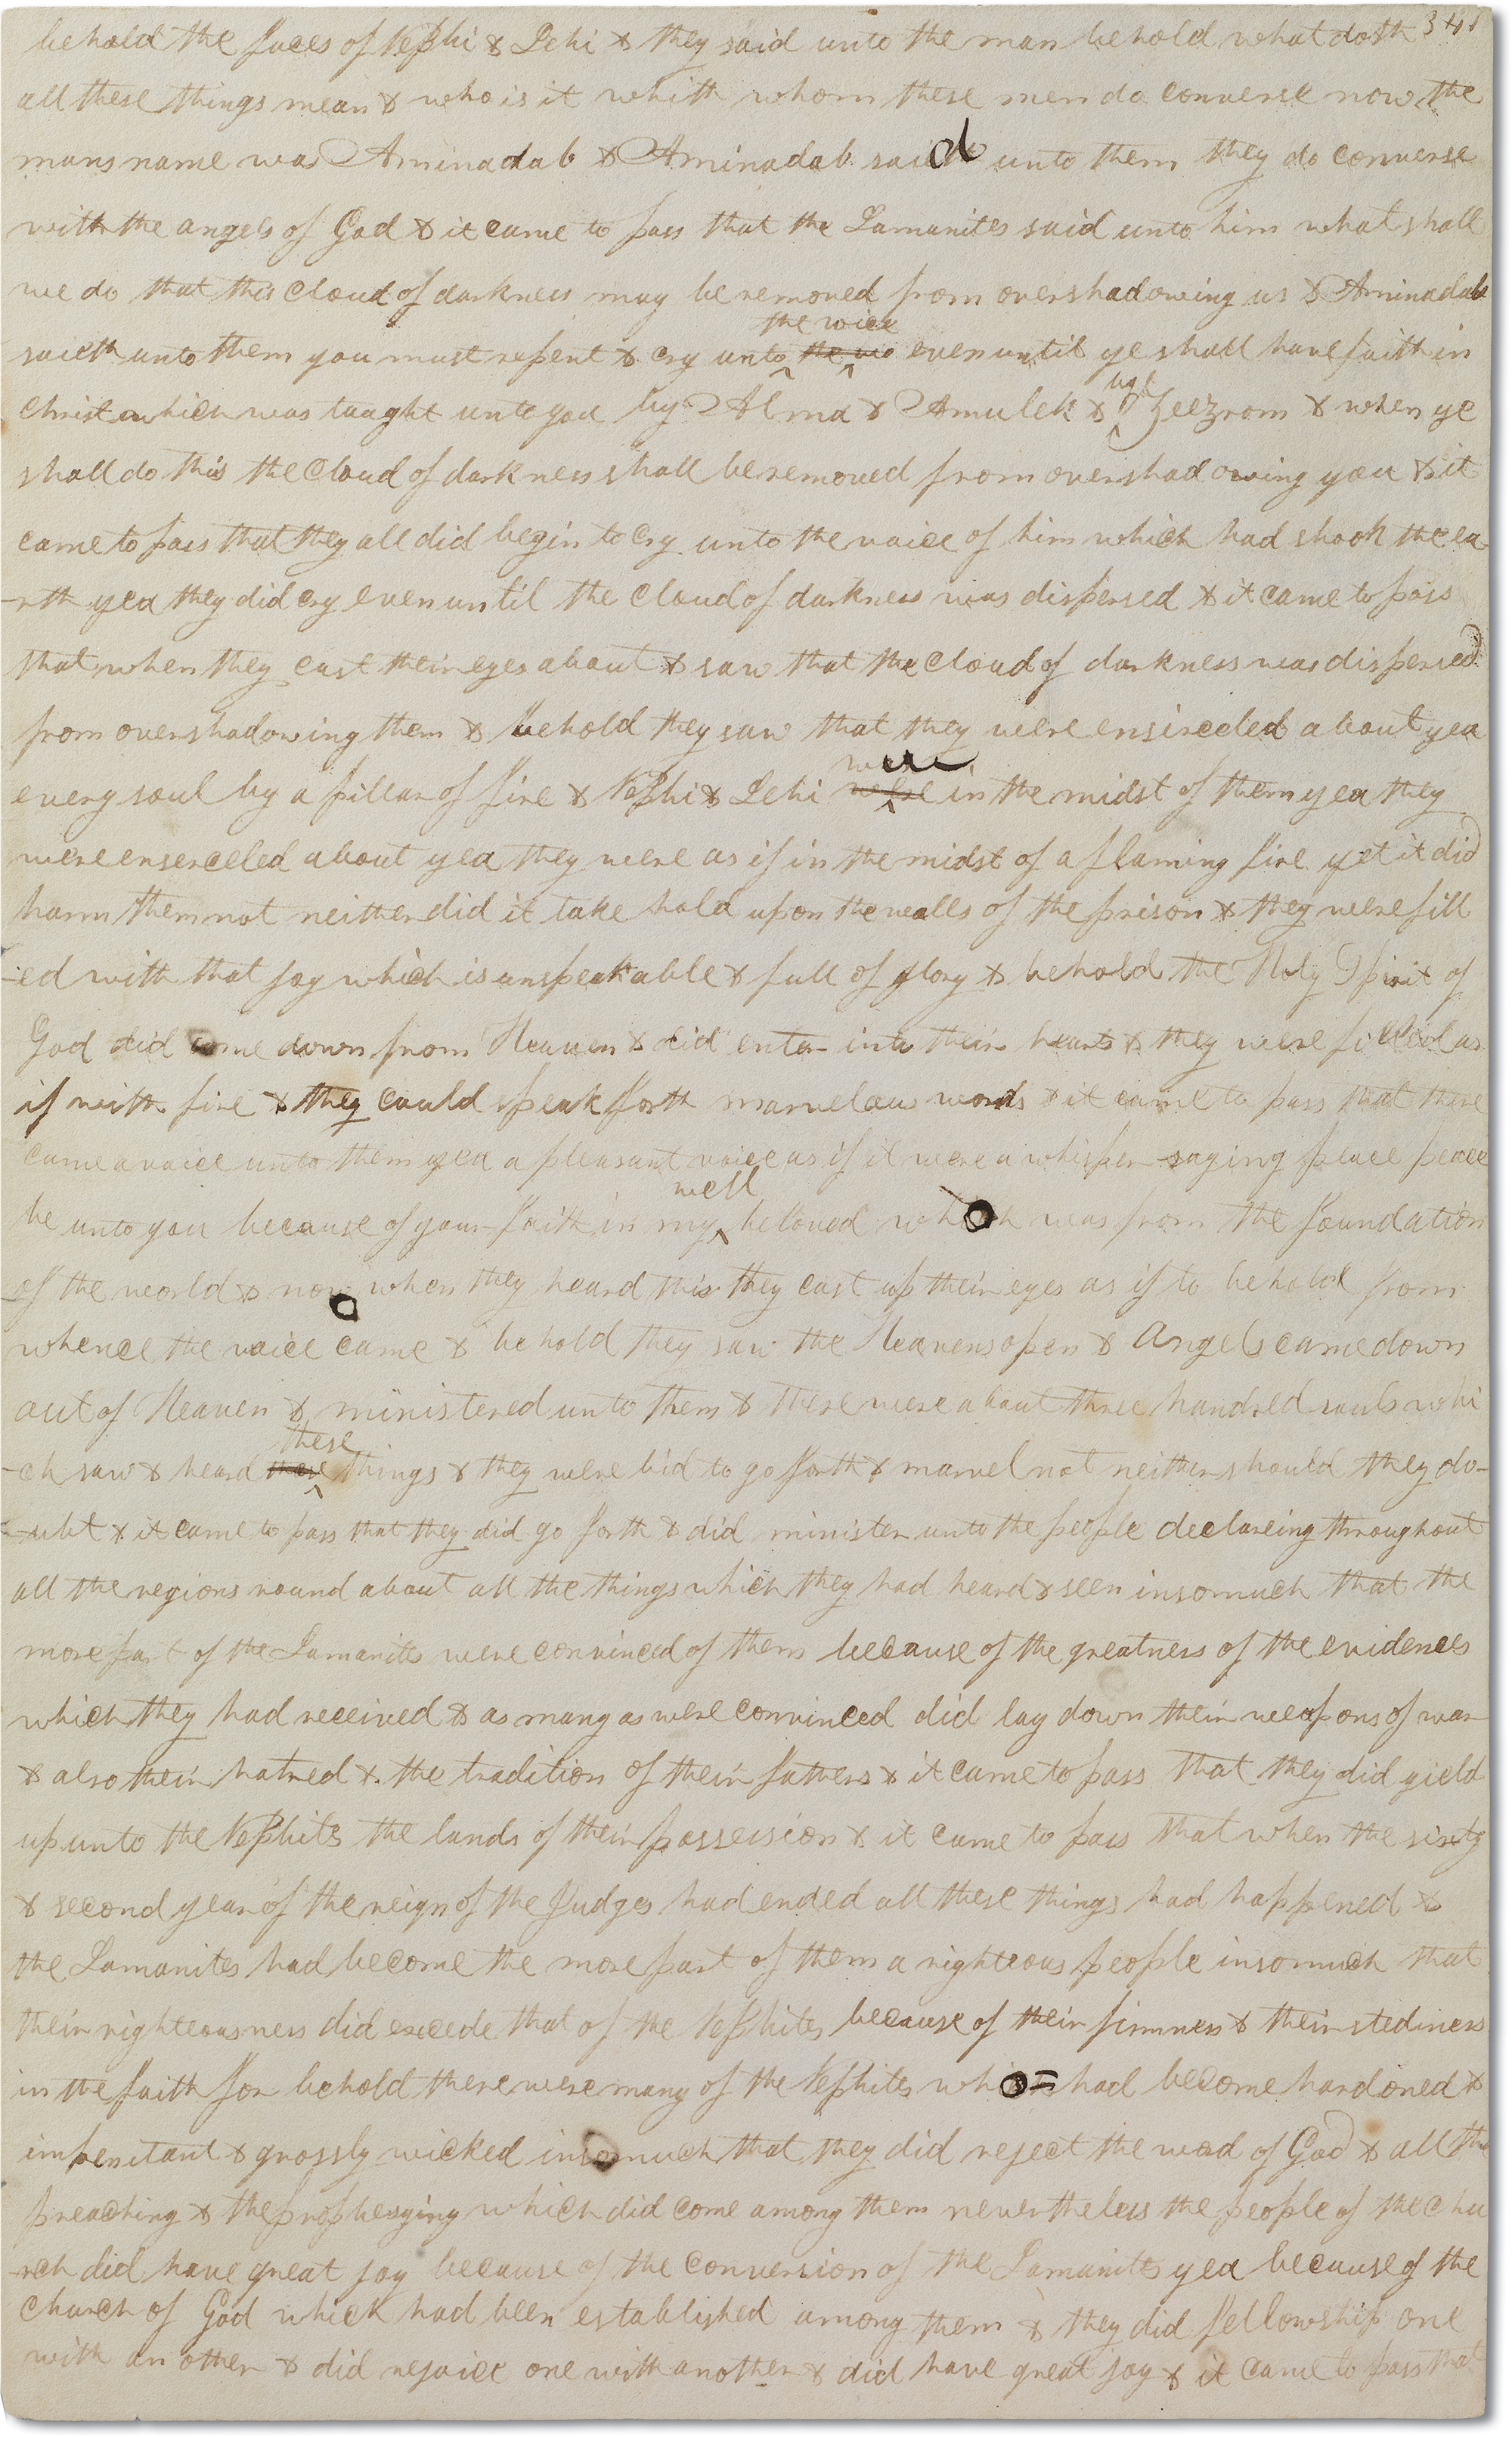 behold the faces of Nephi & Lehi & they said unto the man behold what doth 341
all these things mean & who is it whith whom these men do converse now the
mans name was Aminadab & Aminadab said unto them they do converse
with the angels of God & it came to pass that the Lamanites said unto him what shall
we do that this cloud of darkness may be removed from overshadowing us & Aminadab
the voice
saith unto them you must repent & cry unto the vio even until ye shall have faith in
Christ which was taught unto you by Alma & Amulek & Zeezrom & when ye
shall do this the cloud of darkness shall be removed from overshadowing you & it
came to pass that they all did begin to cry unto the voice of him which had shook the ea
-rth yea they did cry even until the cloud of darkness was dispersed & it came to pass
that when they cast their eyes about & saw that the cloud of darkness was dispersed
from overshadowing them & behold they saw that they were ensirceled about yea
were
every soul by a pillar of fire & Nephi & Lehi in the midst of them yea they
were enserceled about yea they were as if in the midst of a flaming fire yet it did
harm them not neither did it take hold upon the walls of the prison & they were fill
-ed with that joy which is unspeakable & full of glory & behold the Holy Spirit of
God did come down from Heaven & did enter into their hearts & they were filled as
if with fire & they could speak forth marvelous words & it came to pass that there
came a voice unto them yea a pleasant voice as if it were a whisper saying peace peace
well
be unto you because of your faith in my beloved which was from the foundation
of the world & now when they heard this they cast up their eyes as if to behold from
whence the voice came & behold they saw the Heavens open & Angels came down
out of Heaven & ministered unto them & there were about three hundred souls whi
these
-ch saw & heard those things & they were bid to go forth & marvel not neither should they do-
-ubt & it came to pass that they did go forth & did minister unto the people declareing throughout
all the regions round about all the things which they had heard & seen insomuch that the
more part of the Lamanites were convinced of them because of the greatness of the evidences
which they had received & as many as were convinced did lay down their weapons of war
& also their hatred & the tradition of their fathers & it came to pass that they did yield
up unto the Nephites the lands of their possession & it came to pass that when the sixty
& second year of the reign of the Judges had ended all these things had happened &
the Lamanites had become the more part of them a righteous people insomuch that
their righteousness did excede that of the Nephites because of their firmness & their stediness
in the faith for behold there were many of the Nephites who had become hardened &
impenitant & grossly wicked insomuch that they did reject the word of God & all the
preaching & the prophesying which did come among them nevertheless the people of the chu
-rch did have great joy because of the conversion of the Lamanites yea because of the
church of God which had been established among them & they did fellowship one
with another & did rejoice one with another & did have great joy & it came to pass that